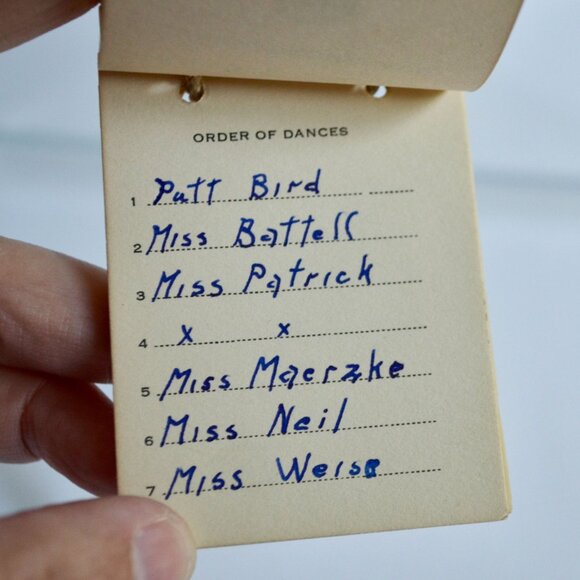 ORDER OF DANCES
1 Patt Bird
2 Miss Battell
3 Miss Patrick
4 x x
5 Miss Maerzke
6 Miss Neil
7 Miss Weise